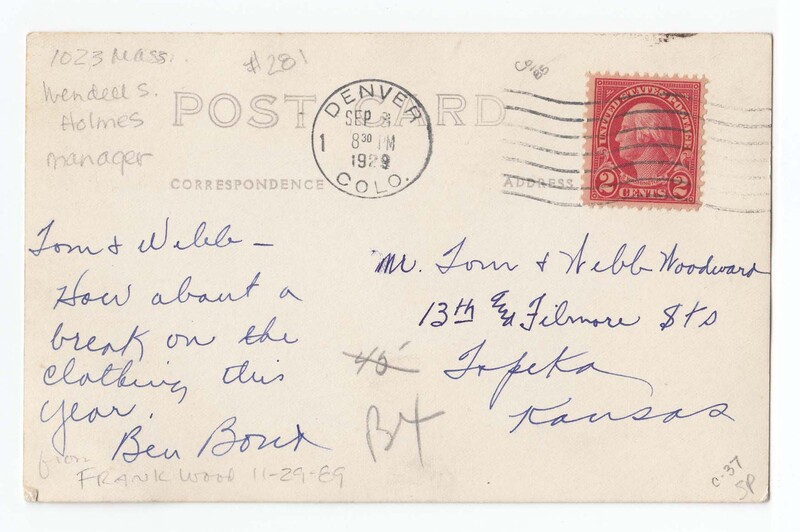 1023 Mass.
Wendell S.
Holmes
manager
#281
POST CARD
CORRESPONDENCE
ADDRESS
DENVER
SEP
1 8 30 PM
1929
COLO.
UNITED STATES POSTAGE
2 CENTS 2
Tom & Webb –
How about a
break on the
clothing this
year.
Ben
from
FRANK WOOD 11-29-89
Mr. Tom & Webb Woodward
13th and Filmore Sts
Topeka
Kansas
45
B4
C.37
SP